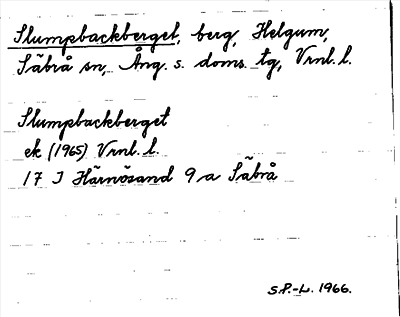 Slumpbackberget, berg, Helgum,
Säbrå sn, Ång. s. doms. tg, Vrnl. l.
Slumpbackberget
ek (1965) Vrnl. l.
17 I Härnösand 9 a Säbrå
S.P.-L. 1966.